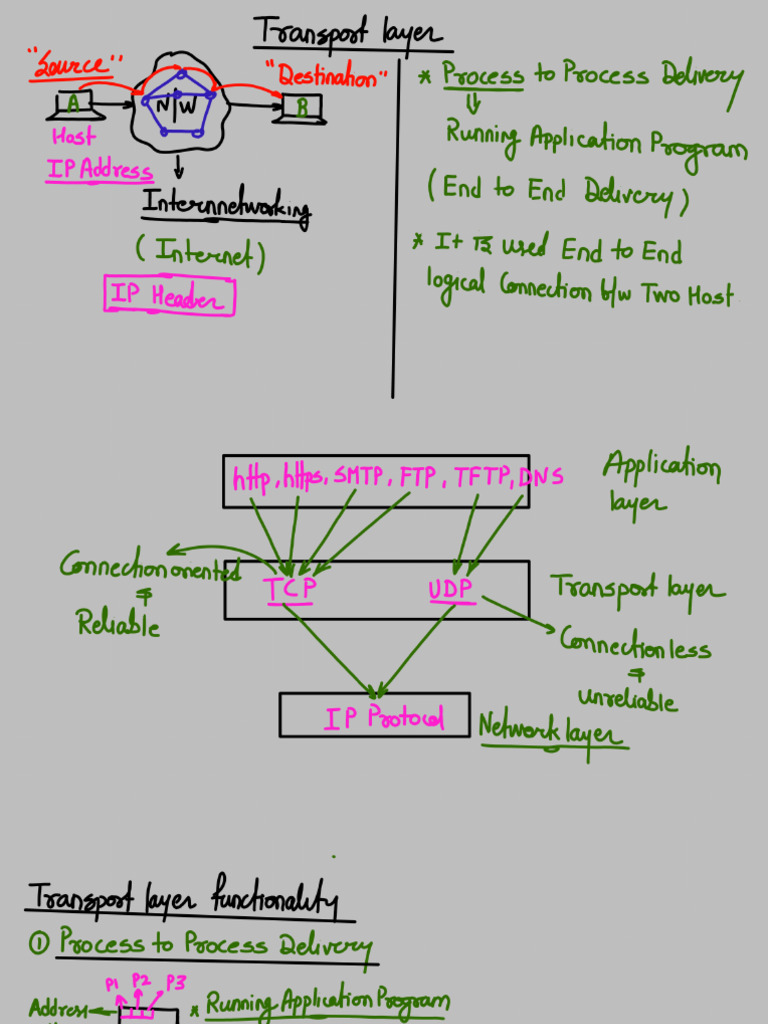 Transport layer
"Source"
"Destination"
A
N|W
B
Host
IP Address
Internnetworking
(Internet)
IP Header
* Process to Process Delivery
Running Application Program
(End to End Delivery)
* It is used End to End
logical Connection b/w Two Host
http, https, SMTP, FTP, TFTP, DNS
Application
layer
Connection oriented
&
Reliable
TCP
UDP
Transport layer
Connectionless
&
unreliable
IP Protocol
Network layer
Transport layer functionality
① Process to Process Delivery
P1 P2 P3
Address
* Running Application Program